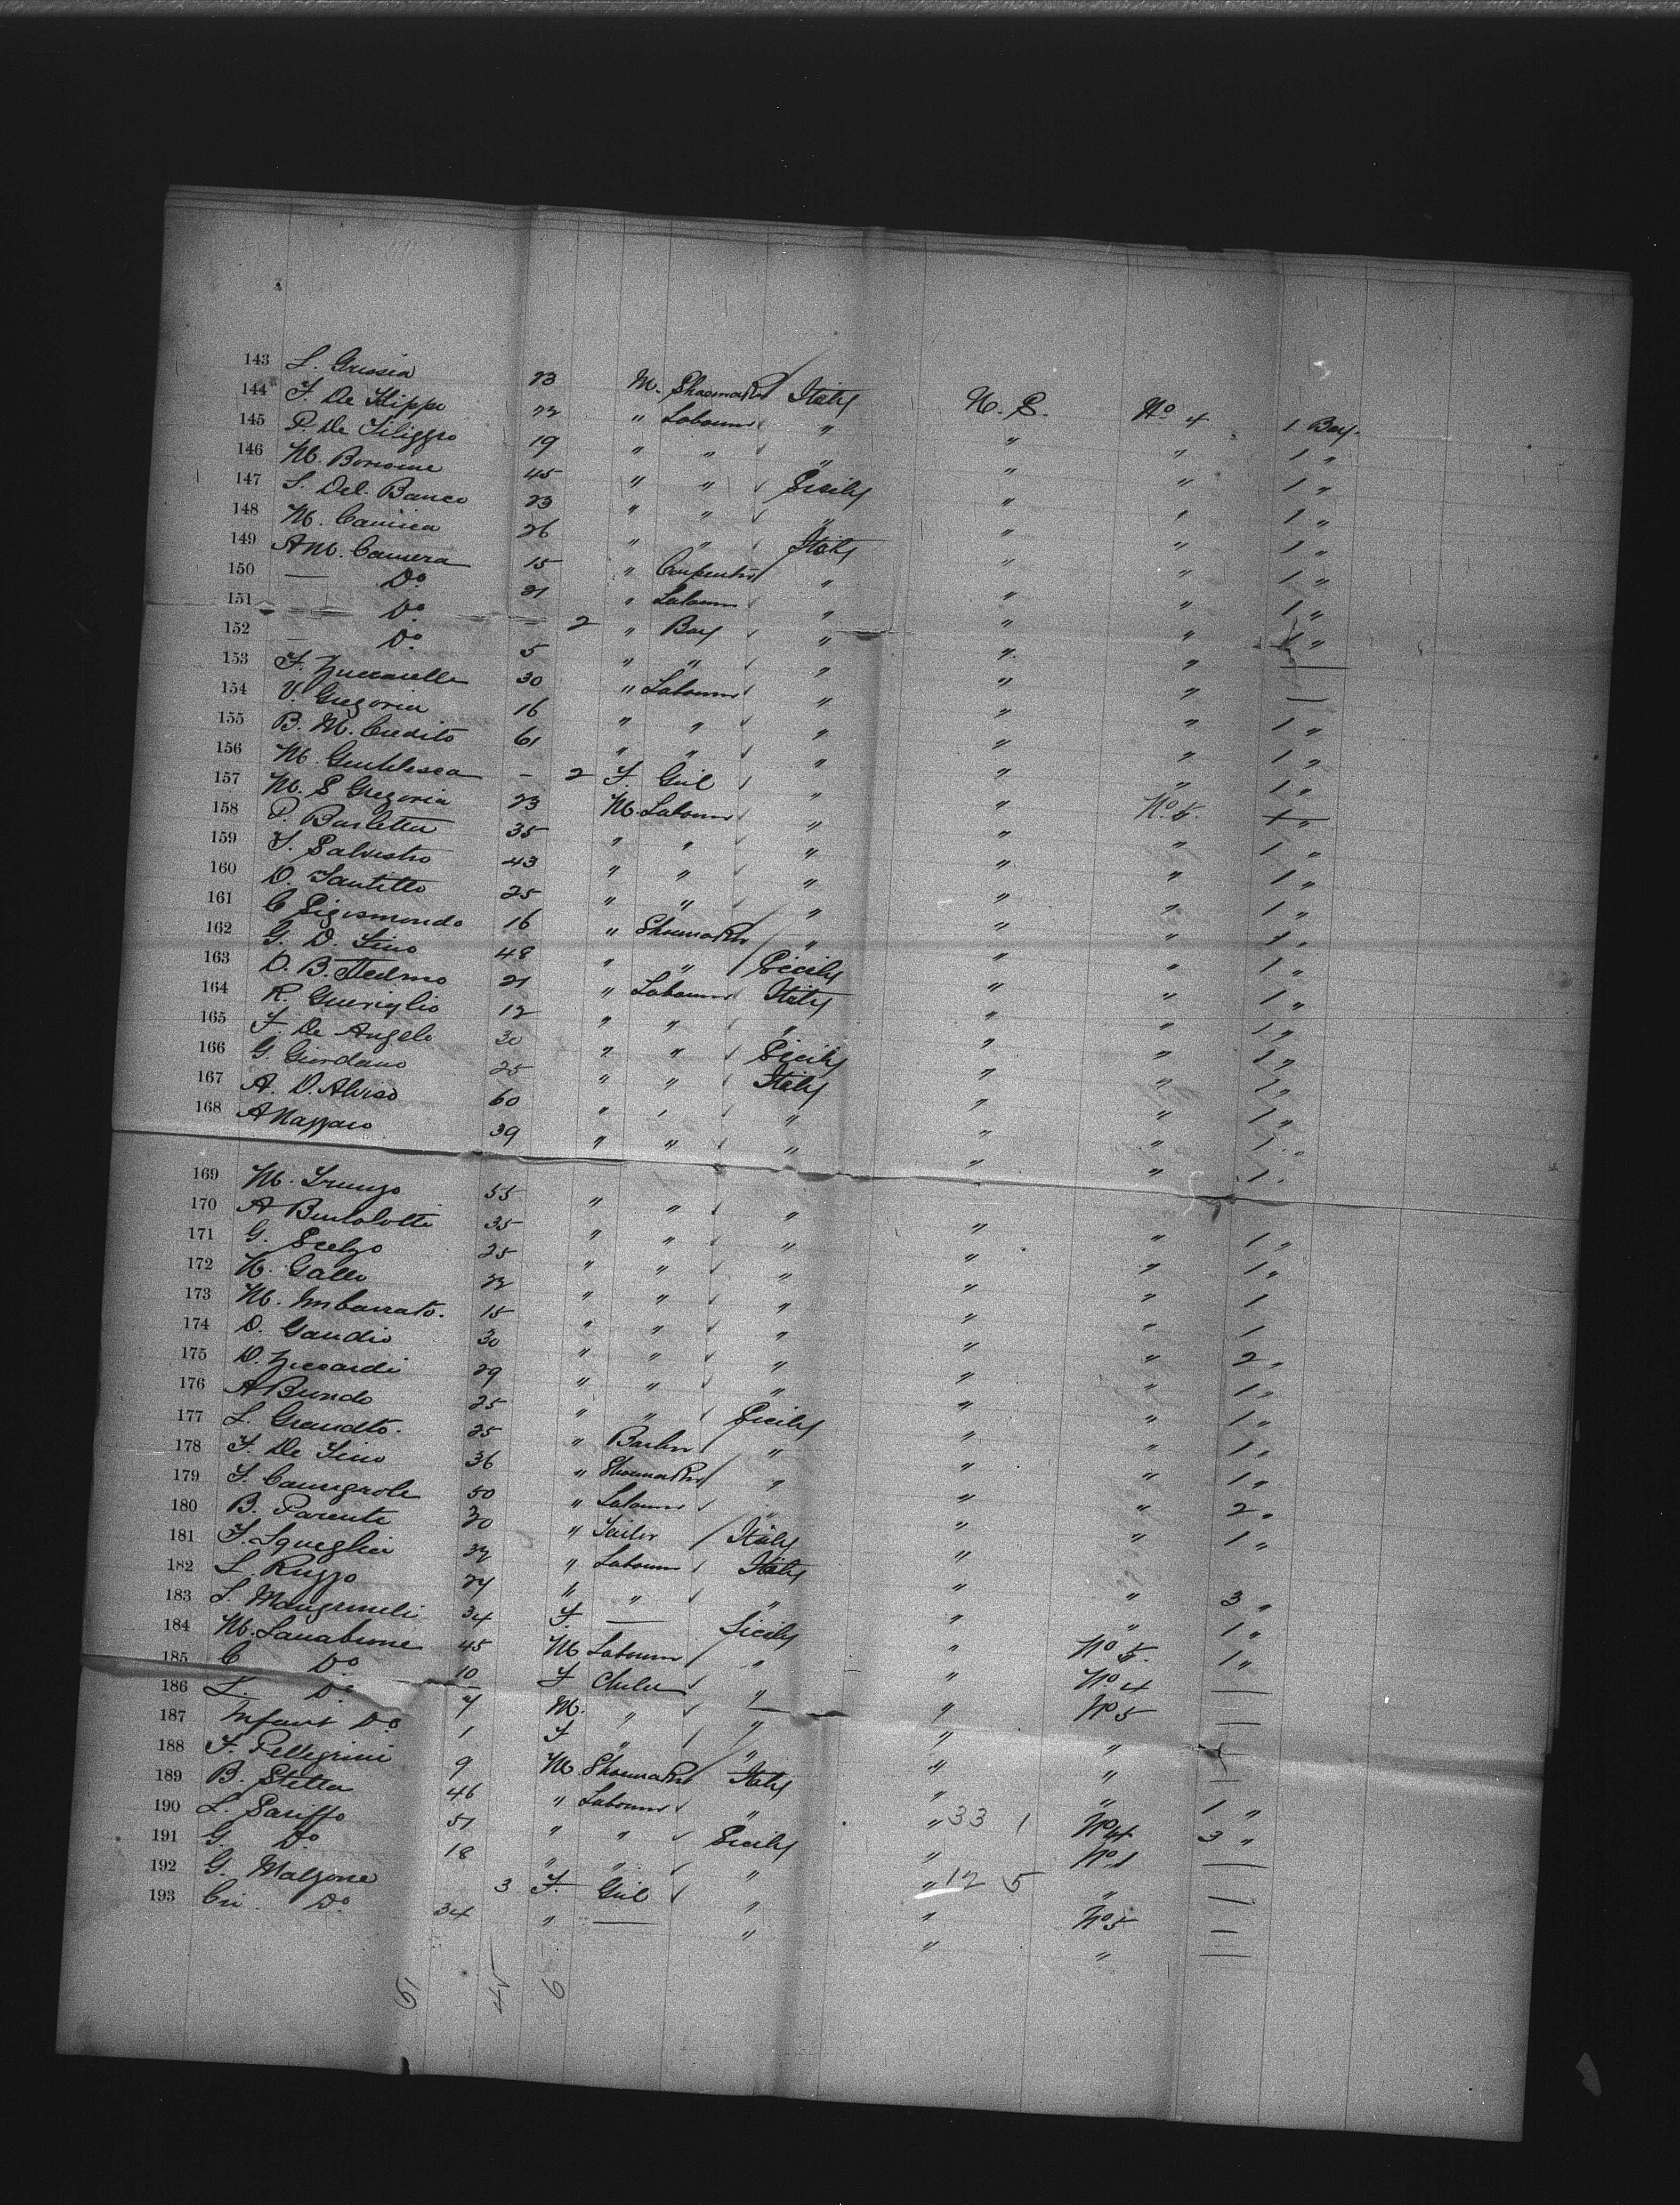 143 L. Grissia 23 M. Shoemaker Italy U. S. No 4 1 Bag.
144 F. De Filippo 22 " Labourer " " " 1 "
145 P. De Filippo 19 " " " " " 1 "
146 M. 45 " " Sicily " " 1 "
147 S. Del. Banco 23 " " " " " 1 "
148 M. 26 " " Italy " " 1 "
149 A M. Camera 15 " Carpenter " " " 1 "
150 — Do 21 " Labourer " " " 1 "
151 Do 2 " Boy " " " —
152 — Do 5 " " " " " —
153 F. Zuccarelle 30 " Labourer " " " 1 "
154 V. Gregoria 16 " " " " " 1 "
155 B. M. Credito 61 " " " " " 1 "
156 M. Gentilesca - 2 F. Girl " " No 5.
157 M. S Gregoria 23 M. Labourer " " " 1 "
158 P. Barletta 35 " " " " " 1 "
159 F. Salvestro 43 " " " " " 1 "
160 D. Santillo 25 " " " " " 1 "
161 C Sigismondo 16 " Shoemaker " " " 1 "
162 G. D. Fino 48 " " Sicily " " 1 "
163 D. B. 21 " Labourer Italy " " 1 "
164 R. Gueriglio 12 " " " " " 1 "
165 F. De Angelo 30 " " Sicily " " 1 "
166 G. Giordano 25 " " Italy " " 1 "
167 A. D. Aloiso 60 " " " " " 1 "
168 A Nappaso 39 " " " " " 1 "
169 M. 55 " " " " " 1 "
170 A Bertolotti 35 " " " " " 1 "
171 G. Scelzo 25 " " " " " 1
172 N. Gallo 22 " " " " " 1
173 M. Imbarrato. 15 " " " " " 2 "
174 D. Gaudio 30 " " " " " 1 "
175 D. Ziccardi 29 " " " " " 1 "
176 A Bundo 25 " " Sicily " " 1 "
177 L. 25 " Barber " " " 1 "
178 F. De Fino 36 " Shoemaker " " " 2 "
179 F. 50 " Labourer " " " 1 "
180 B. Parente 30 " Tailor Italy "
181 F. Squeglia 32 " Labourer Italy " " 3 "
182 L. Ruzzo 24 " " " " " 1 "
183 S. 34 F. — Sicily " No 5. 1 "
184 M. 45 M Labourer " " No 4 —
185 C Do 10 F Child " " No 5 —
186 L. Do 7 M. " " " " —
187 Infant Do 1 F " " " " —
188 F. Pellegrini 9 M. Shoemaker Italy " " 1 "
189 B. Stella 46 " Labourer " " 33 1 No 4 3 "
190 L. 51 " " Sicily " No 1 —
191 G. Do 18 " " " " 12 5 " —
192 G. Malzone 3 F. Girl " " No 5 —
193 Cri. Do 34 " — " " " —
6 45 6